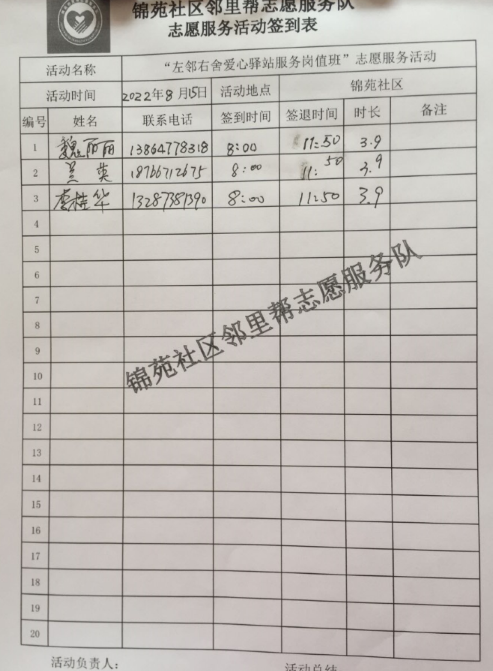 锦苑社区邻里帮志愿服务队
志愿服务活动签到表
活动名称 “左邻右舍爱心驿站服务岗值班”志愿服务活动
活动时间 2022年8月15日 活动地点 锦苑社区
编号 姓名 联系电话 签到时间 签退时间 时长 备注
1 魏丽丽 13864778318 8:00 11:50 3.9
2 英 18766712675 8:00 11:50 3.9
3 桂华 13287381390 8:00 11:50 3.9
4
5
6
7
8
9
10
11
12
13
14
15
16
17
18
19
20
锦苑社区邻里帮志愿服务队
活动负责人: 活动总结